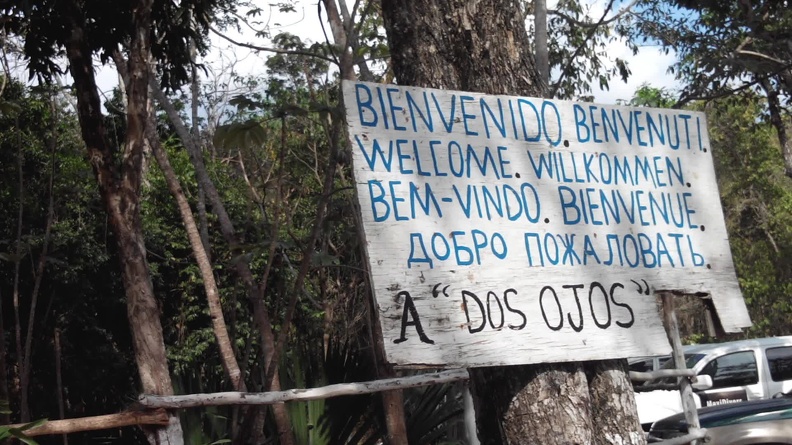 BIENVENIDO. BENVENUTI.
WELLCOME. WILLKOMMEN.
BEM-VINDO. BIENVENUE.
ДОБРО ПОЖАЛОВАТЬ.
A "DOS OJOS"